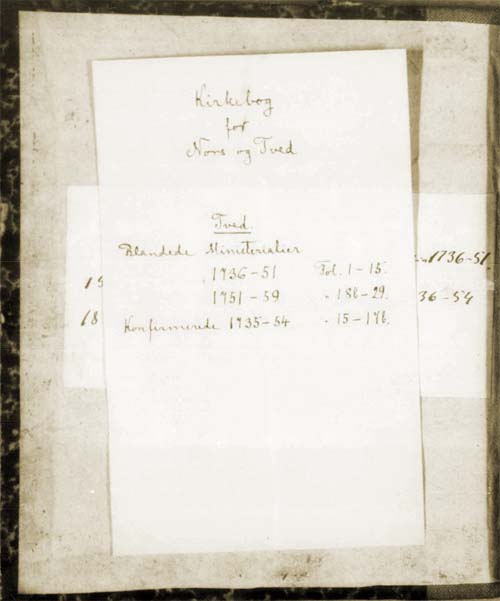 Kirkebog
for
Nors og Tved
Tved
Blandede Ministerialier
1736-51 Fol. 1-15.
1751-59 " 18b-29.
Konfirmerede 1735-54 " 15-17b.
1736-51
36-54